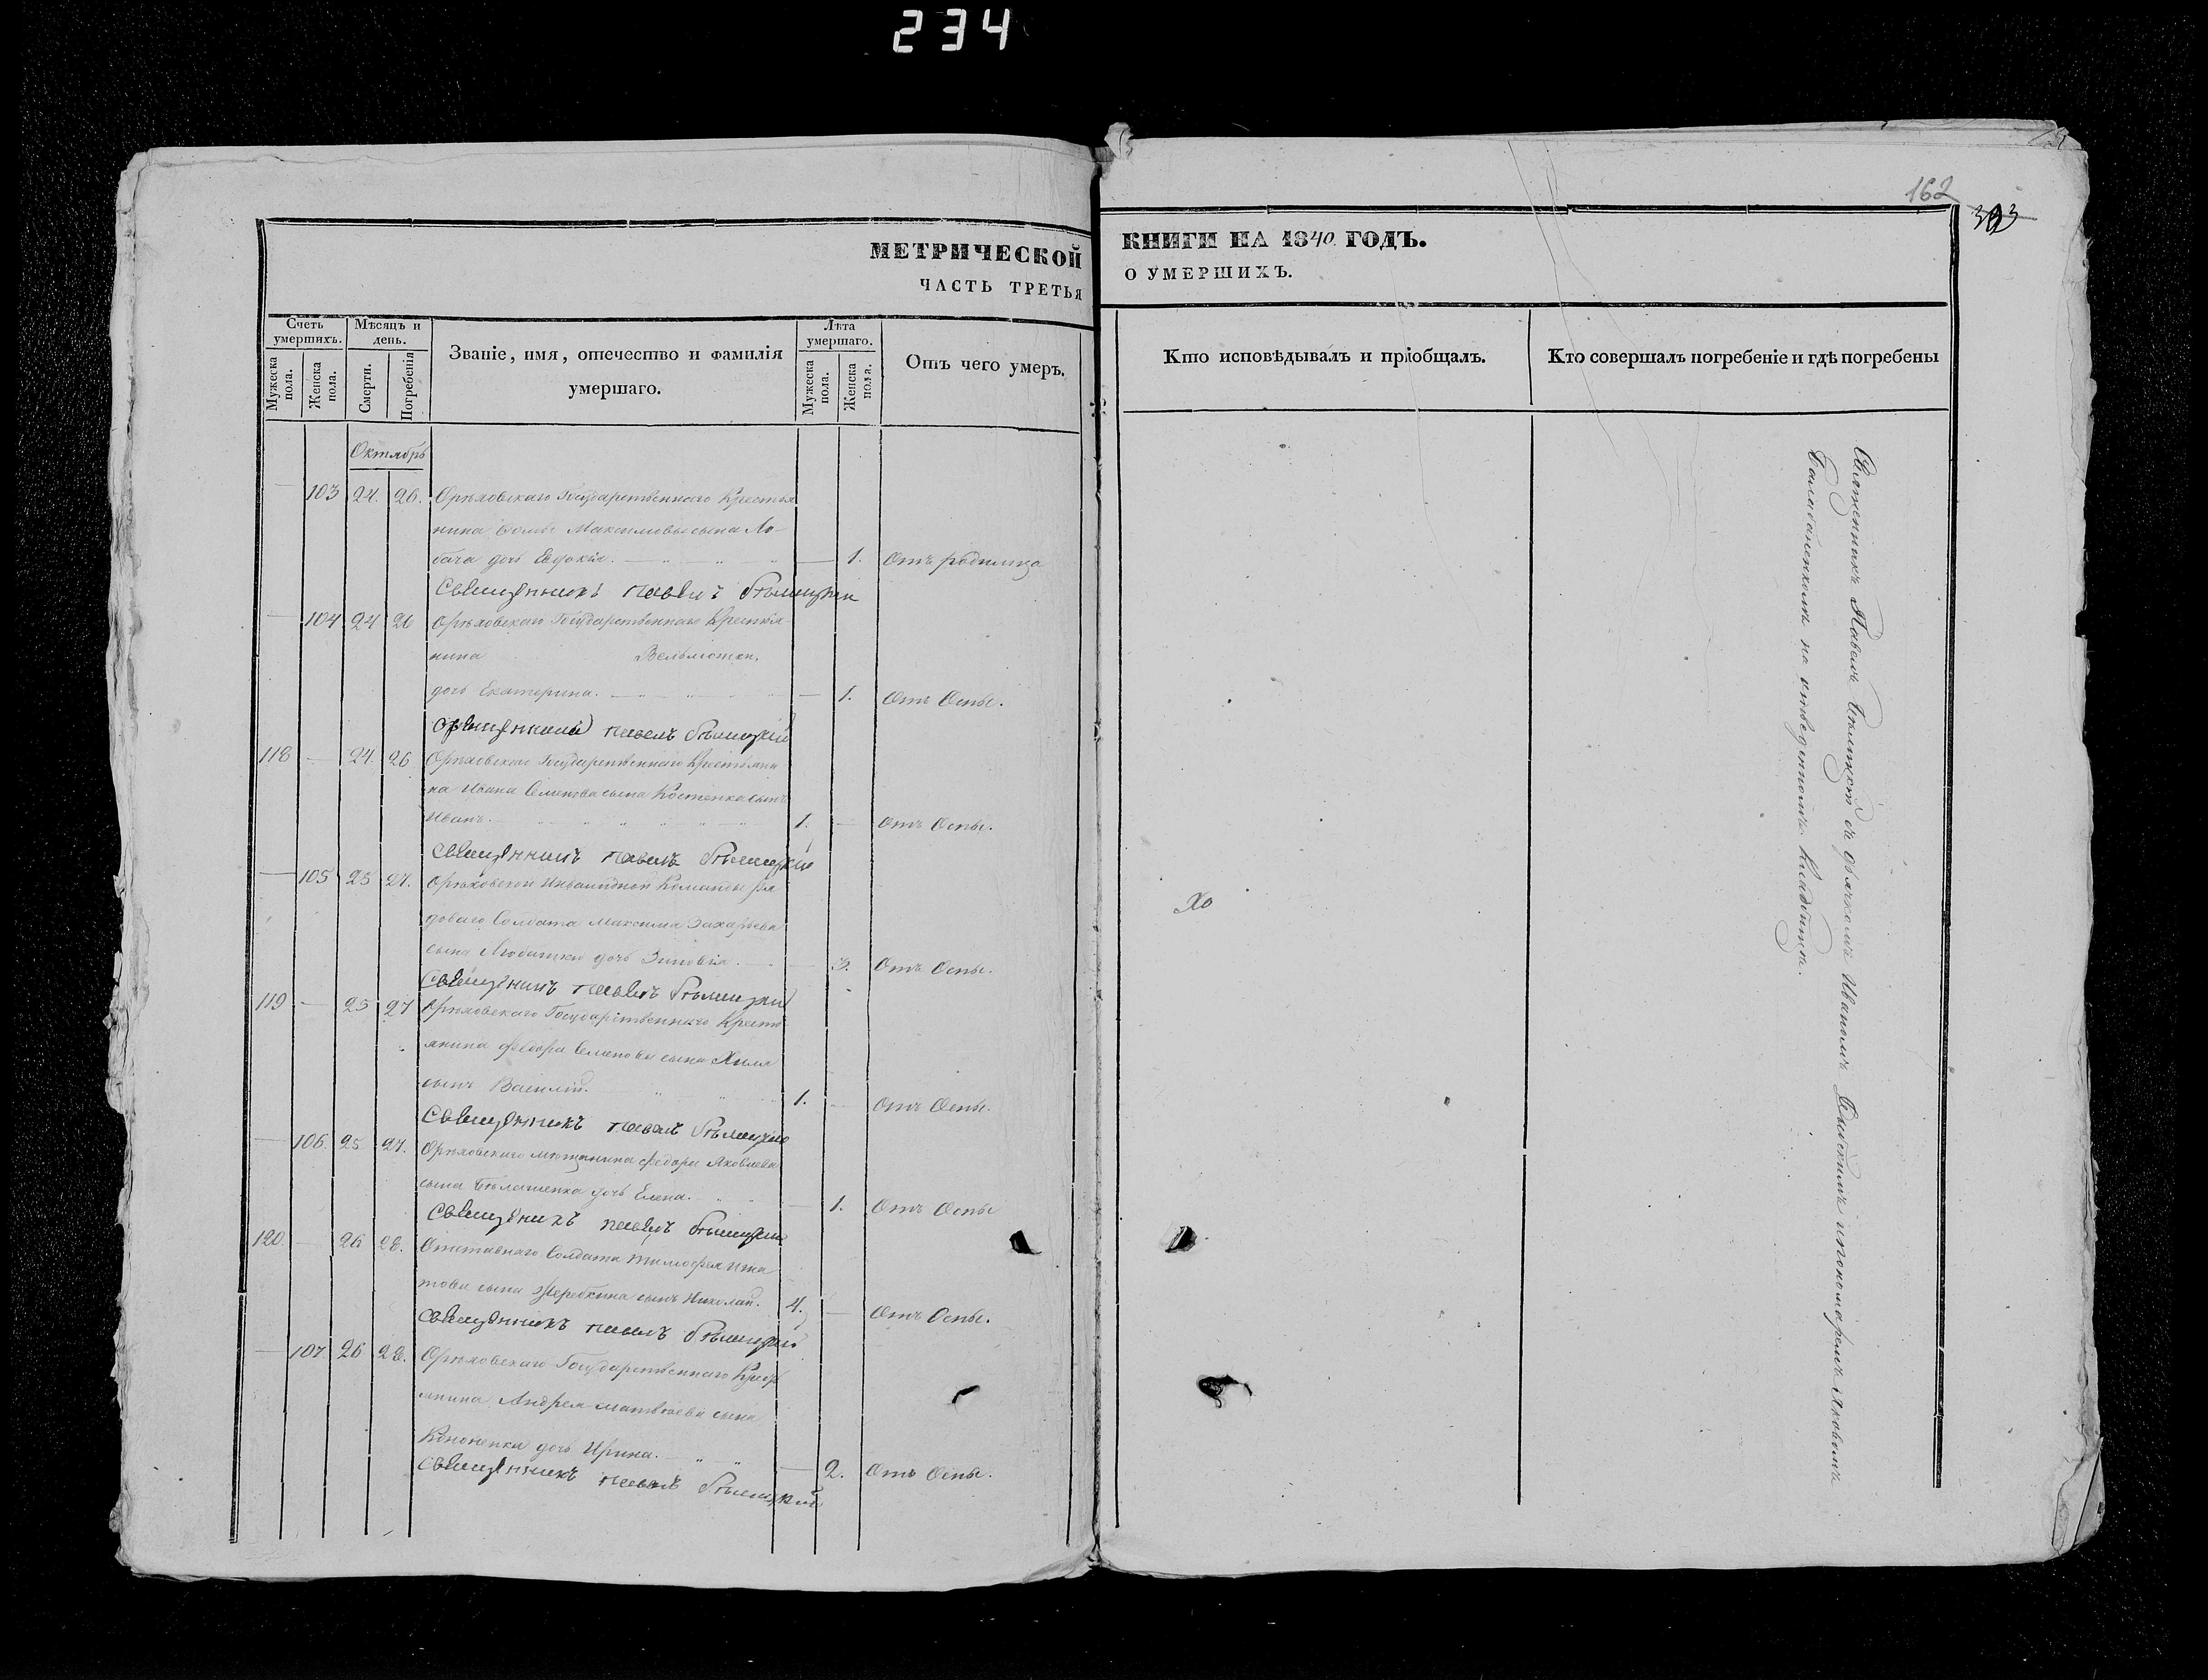 234
162
303
МЕТРИЧЕСКОЙ КНИГИ НА 1840 ГОДЪ.
ЧАСТЬ ТРЕТЬЯ О УМЕРШИХЪ.
Счетъ умершихъ.
Мужеска пола.
Женска пола.
Мѣсяцъ и день.
Смерти.
Погребенія
Званіе, имя, отечество и фамилія
умершаго.
Лѣта умершаго.
Мужеска пола.
Женска пола.
Отъ чего умеръ.
Кто исповѣдывалъ и пріобщалъ.
Кто совершалъ погребеніе и гдѣ погребены
Октябрь
— 103 24. 26. Орѣховскаго Государственнаго Крестья
нина Фомы Максимова сына Ло-
бача дочь Евдокія. — 1. Отъ родимца
Священникъ Павелъ
— 104 24 26 Орѣховскаго Государственнаго Крестья
нина
дочь Екатерина. — 1. Отъ Оспы.
Священникъ Павелъ
118 — 24. 26 Орѣховскаго Государственнаго Крестьяни
на Ивана Семенова сына Костенка сынъ
Иванъ. 1. — Отъ Оспы.
Священникъ Павелъ
— 105 25 27. Орѣховской Инвалидной Команды ря
доваго Солдата Максима Захарьева
сына дочь Зиновія. — 3. Отъ Оспы.
Священникъ Павелъ
119 — 25 27 Орѣховскаго Государственнаго Кресть
янина Федора Семенова сына Хиля
сынъ Василій. 1. — Отъ Оспы.
Священникъ Павелъ
— 106. 25 27. Орѣховскаго мѣщанина Федора Яковлева
сына Бѣлашенка дочь Елена. — 1. Отъ Оспы
Священникъ Павелъ
120 — 26 28. Отставнаго Солдата Тимофея Игна
това сына Жеребкина сынъ Николай. 4. — Отъ Оспы.
Священникъ Павелъ
— 107 26 28. Орѣховскаго Государственнаго Крест
янина Андрея Матвѣева сына
Кононенка дочь Ирина. — 2. Отъ Оспы.
Священникъ Павелъ
Хо
Священникъ Павелъ съ дьячкомъ Иваномъ и пономаремъ Яковомъ
на отведенномъ кладбищѣ.